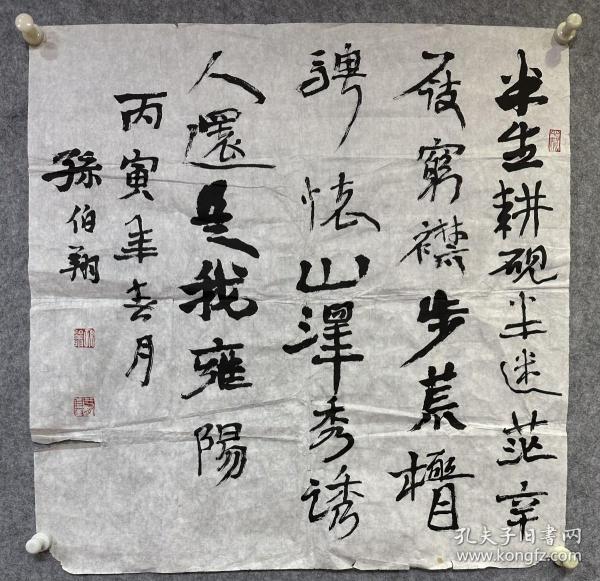 半生耕砚半迷茫幸
发穷襟步荒
骋怀山澤秀誘
人還是我雍陽
丙寅年春月
孫伯翔
孔夫子旧书网
www.kongfz.com